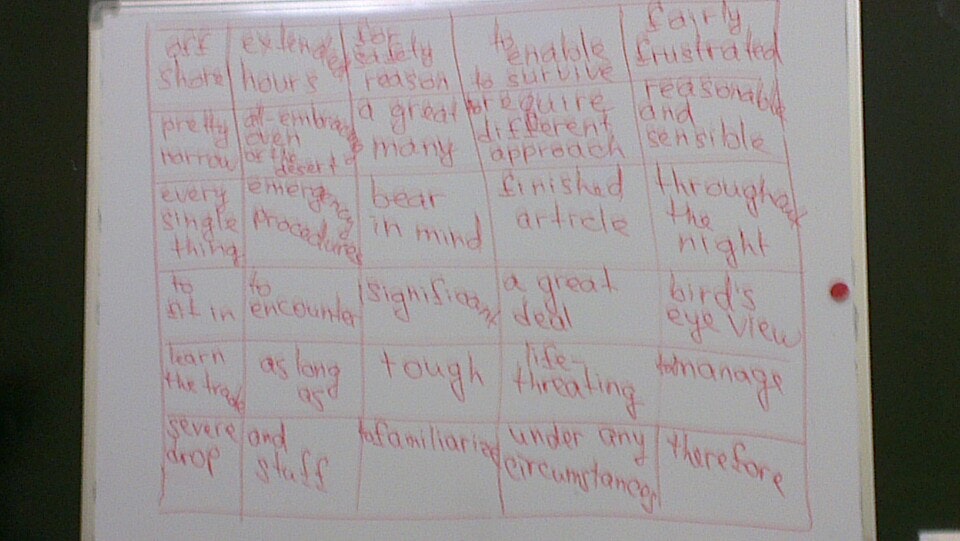 off
shore
extended
hours
for
safety
reason
to
enable
to survive
fairly
frustrated
pretty
narrow
all-embracing
even
of the
desert
a great
many
to require
different
approach
reasonable
and
sensible
every
single
thing
emergency
procedures
bear
in mind
finished
article
throughout
the
night
to
fit in
to
encounter
significant
a great
deal
bird's
eye view
learn
the trade
as long
as
tough
life-
threating
to manage
severe
drop
and
staff
to familiaried
under any
circumstances
therefore